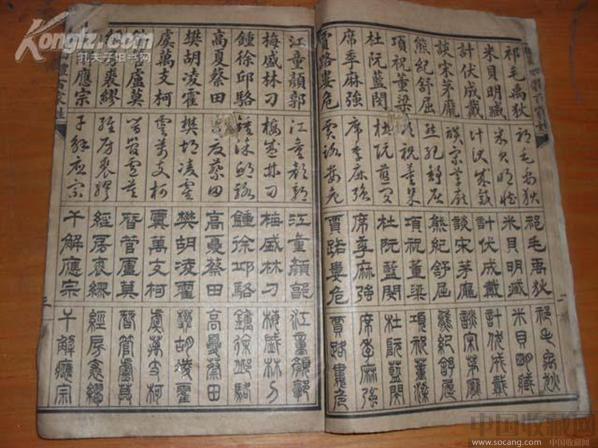 Kongfz.com
孔夫子旧书网
四體百家姓
祁毛禹狄 祁毛禹狄 祁毛禹狄 祁毛禹狄
米貝明臧 米貝明臧 米貝明臧 米貝明臧
計伏成戴 計伏成戴 計伏成戴 計伏成戴
談宋茅龐 談宋茅龐 談宋茅龐 談宋茅龐
熊紀舒屈 熊紀舒屈 熊紀舒屈 熊紀舒屈
項祝董梁 項祝董梁 項祝董梁 項祝董梁
杜阮藍閔 杜阮藍閔 杜阮藍閔 杜阮藍閔
席季麻強 席季麻強 席季麻強 席季麻強
賈路婁危 賈路婁危 賈路婁危 賈路婁危
江童顏郭 江童顏郭 江童顏郭 江童顏郭
梅盛林刁 梅盛林刁 梅盛林刁 梅盛林刁
鍾徐邱駱 鍾徐邱駱 鍾徐邱駱 鍾徐邱駱
高夏蔡田 高夏蔡田 高夏蔡田 高夏蔡田
樊胡凌霍 樊胡凌霍 樊胡凌霍 樊胡凌霍
虞萬支柯 虞萬支柯 虞萬支柯 虞萬支柯
盧莫 昝管盧莫 昝管盧莫 昝管盧莫
裘繆 經房裘繆 經房裘繆 經房裘繆
應宗 干解應宗 干解應宗 干解應宗
體百家姓
三
中国收藏网
www.socang.com 中国收藏网